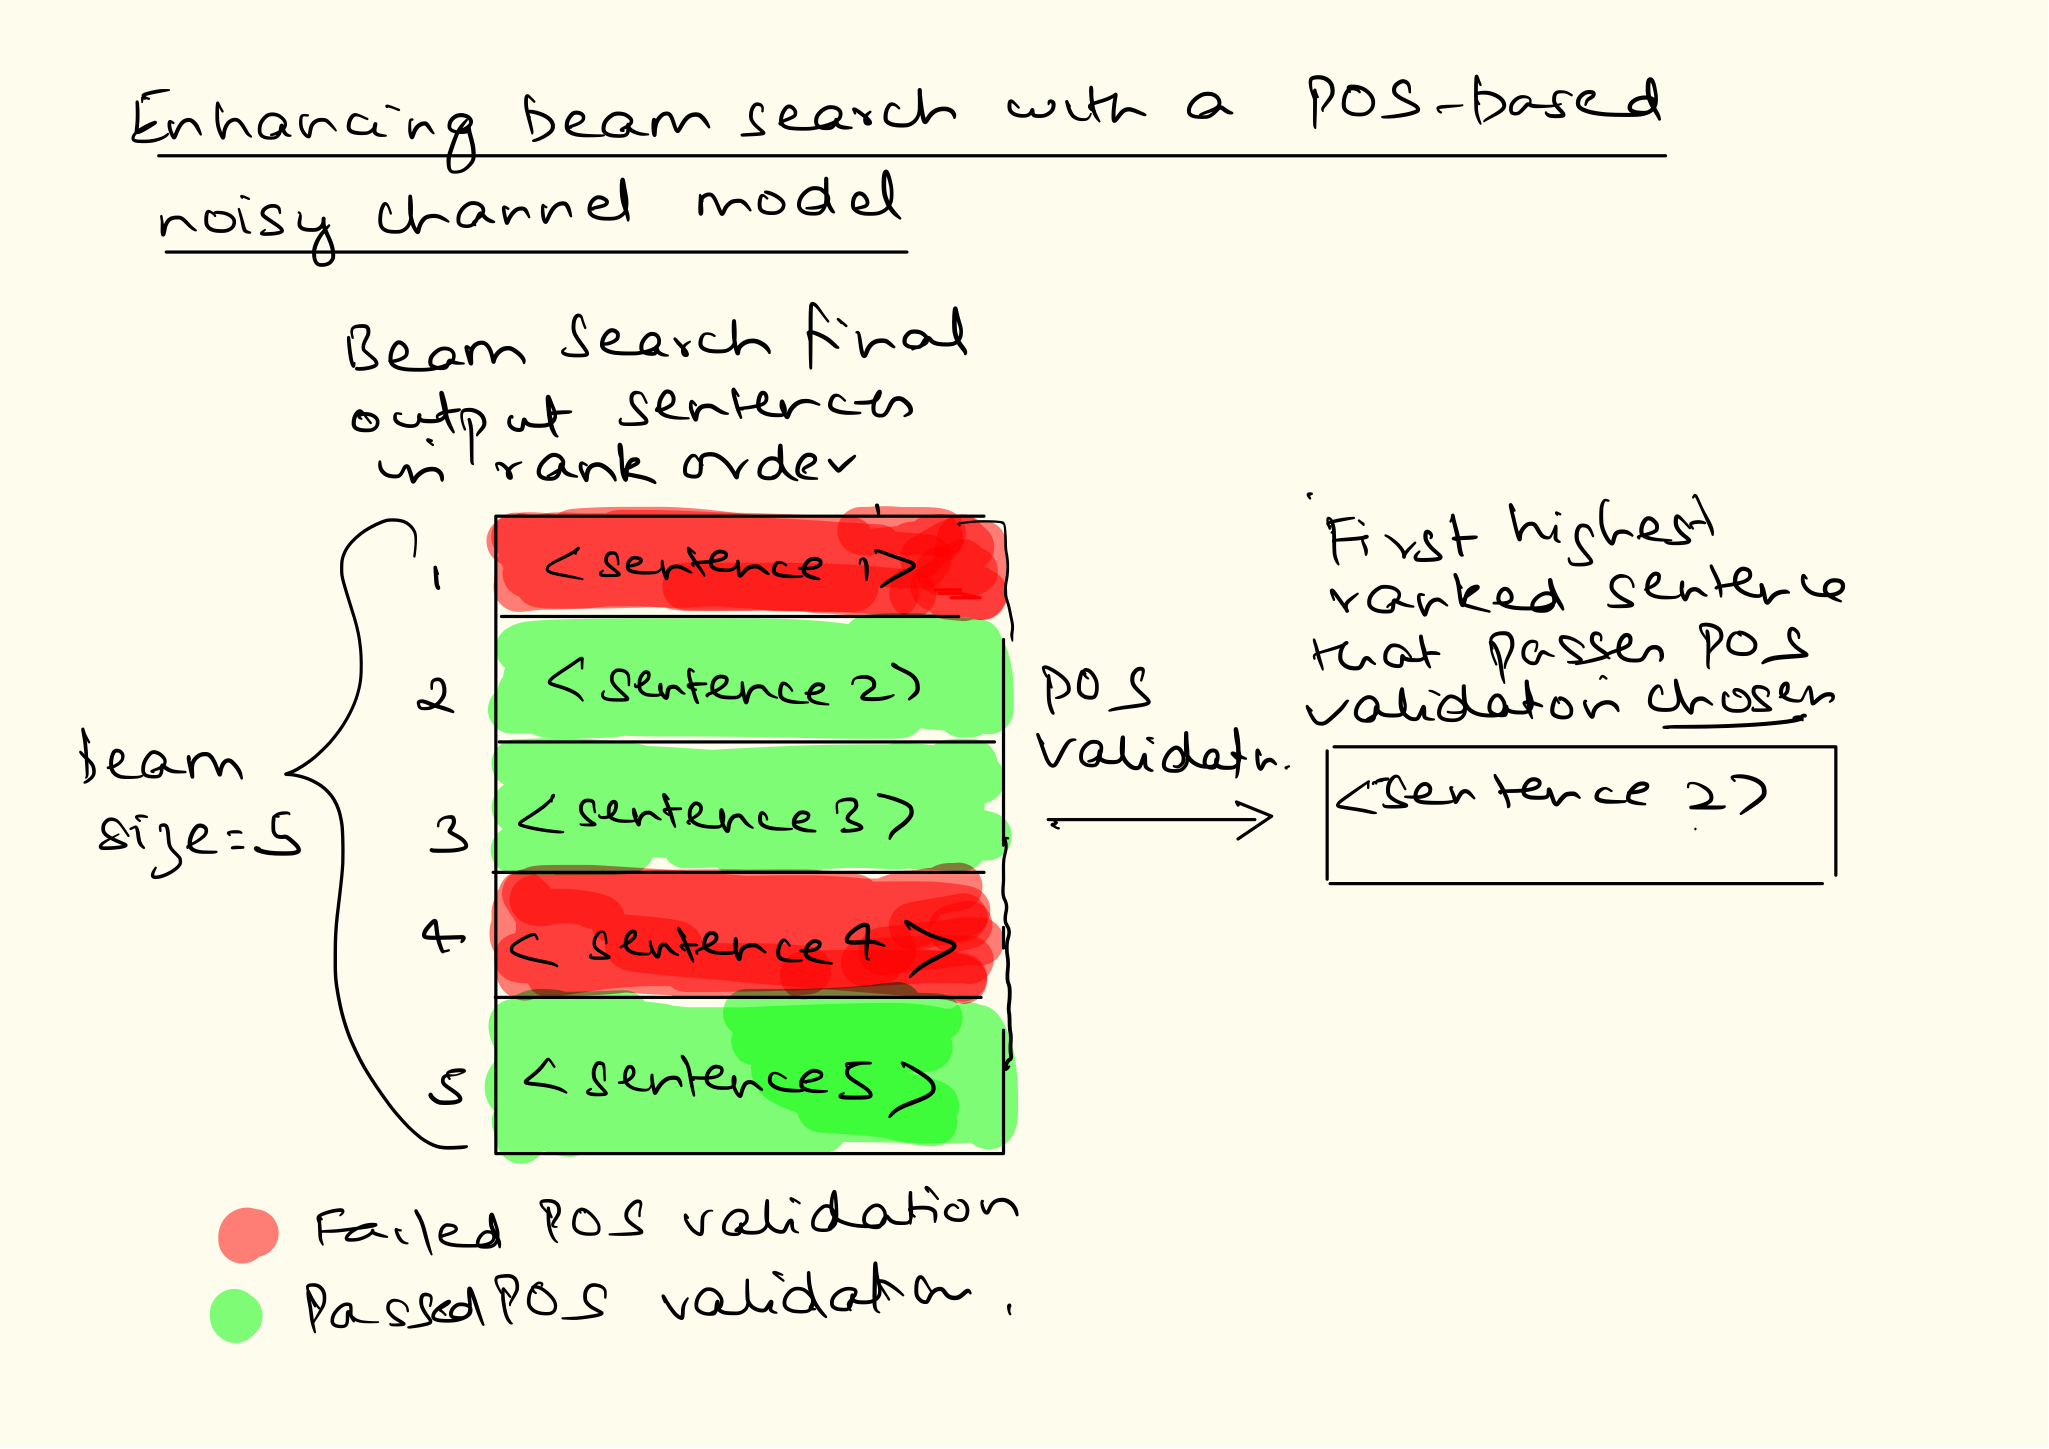 Enhancing beam search with a POS-based
noisy channel model
Beam Search final
output sentences
in rank order
beam
size=5
1
<sentence 1>
2
<sentence 2>
3
<sentence 3>
4
<sentence 4>
5
<sentence 5>
POS
validatn.
First highest
ranked sentence
that passes POS
validation chosen
<sentence 2>
Failed POS validation
Passed POS validation.